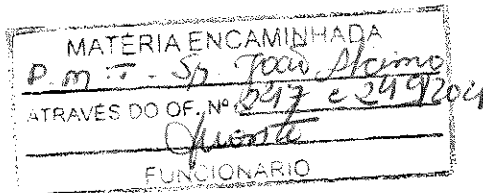 MATÉRIA ENCAMINHADA
D.M.T. - Sr. João Alcimo
ATRAVÉS DO OF. Nº 247 e 249/204
FUNCIONÁRIO